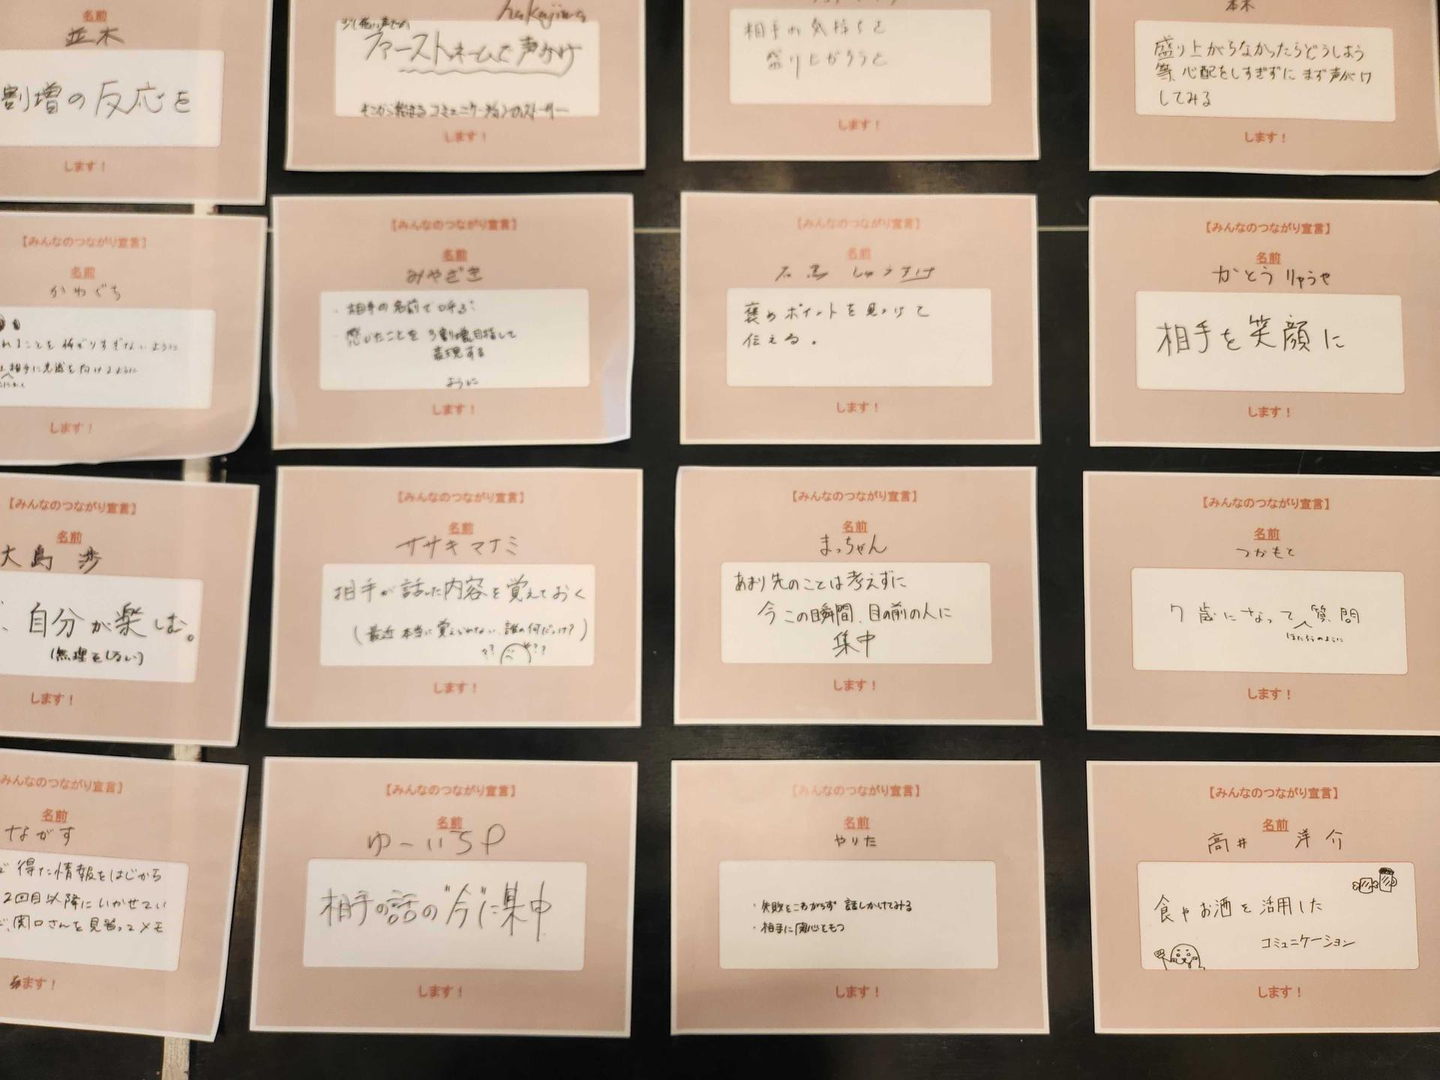 名前
並木
割増の反応を
します！
nakajima
ファーストネームで声かけ
そこから始まるコミュニケーションのストーリー
します！
相手の気持ちを
盛り上がろうと
します！
本木
盛り上がらなかったらどうしよう
等、心配をしすぎずにまず声かけ
してみる
します！
【みんなのつながり宣言】
名前
かわぐち
れることを怖がりすぎないように
相手に意識を向けるように
します！
【みんなのつながり宣言】
名前
みやざき
・相手の名前で呼ぶ
・感じたことを3割増目指して
表現する
ように
します！
【みんなのつながり宣言】
名前
しゅうすけ
褒めポイントを見つけて
伝える。
します！
【みんなのつながり宣言】
名前
かとうりゅうや
相手を笑顔に
します！
【みんなのつながり宣言】
名前
大島 渉
、自分が楽しむ。
(無理をしない)
します！
【みんなのつながり宣言】
名前
ササキマナミ
相手が話した内容を覚えておく
(最近本当に覚えられない、誰の何だっけ?)
??
??
します！
【みんなのつながり宣言】
名前
まっちゃん
あまり先のことは考えずに
今この瞬間、目の前の人に
集中
します！
【みんなのつながり宣言】
名前
つかもと
7歳になって質問
します！
みんなのつながり宣言】
名前
ながす
得た情報をはじから
2回目以降にいかせてい
、関口さんを見習ってメモ
ます！
【みんなのつながり宣言】
名前
ゆーいちP
相手の話の"今"に集中
します！
【みんなのつながり宣言】
名前
やりた
・失敗をこわがらず 話しかけてみる
・相手に関心をもつ
します！
【みんなのつながり宣言】
名前
高井 洋介
食やお酒を活用した
コミュニケーション
します！